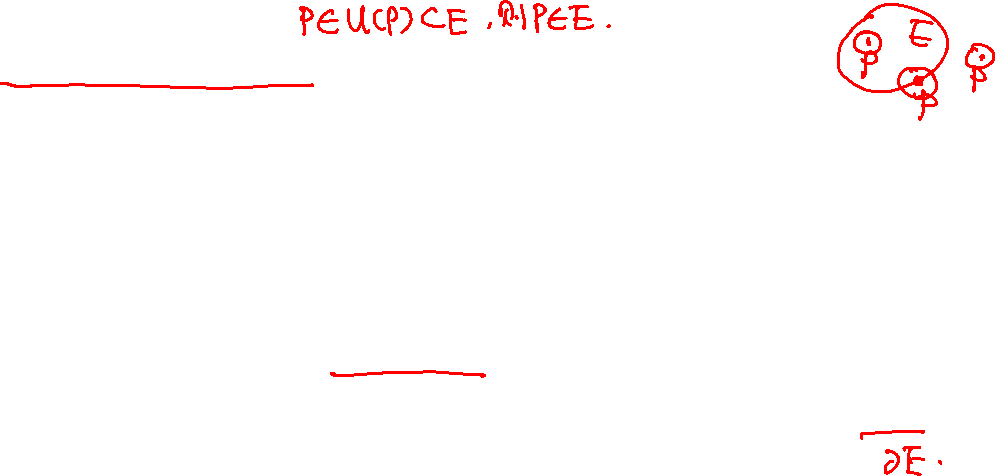 P∈U(P)⊂E,则P∈E.
E
P
P
P
∂E.